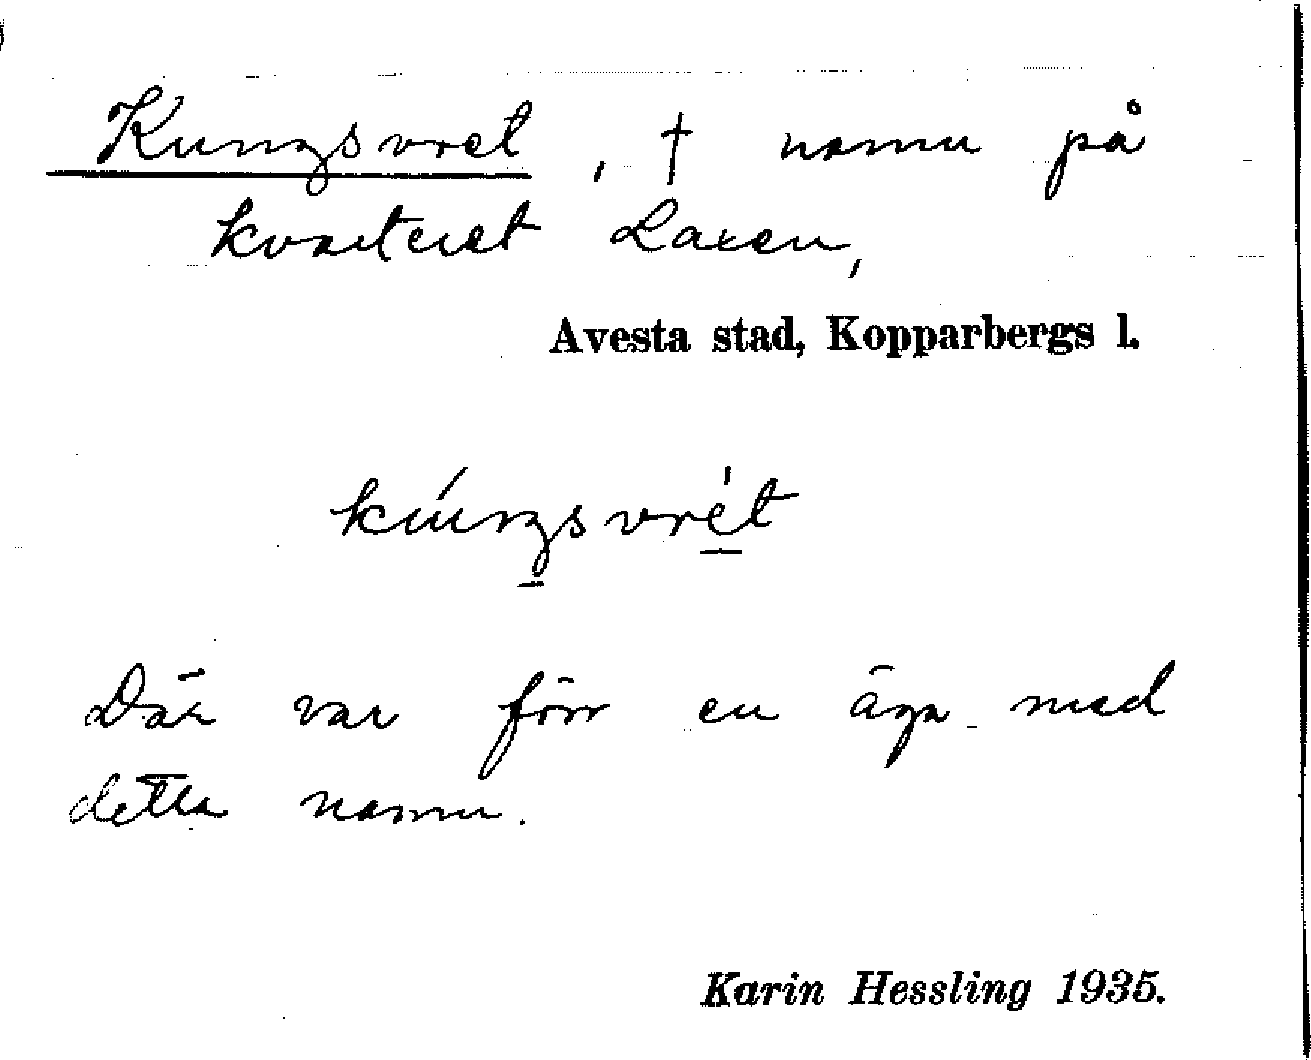 Kungsvret, † namn på
kvarteret Laxen,
Avesta stad, Kopparbergs l.
kúngsvrét
Där var förr en äga med
detta namn.
Karin Hessling 1935.